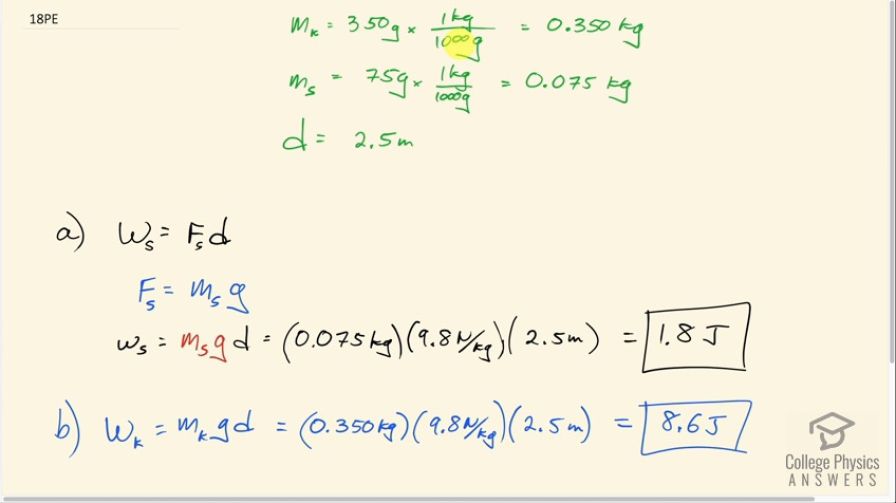 18PE
m_k = 350g × 1kg/1000g = 0.350 kg
m_s = 75g × 1kg/1000g = 0.075 kg
d = 2.5m
a) W_s = F_s d
F_s = m_s g
W_s = m_s g d = (0.075kg)(9.8N/kg)(2.5m) = 1.8 J
b) W_k = m_k g d = (0.350kg)(9.8N/kg)(2.5m) = 8.6J
College Physics
ANSWERS